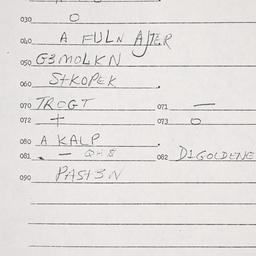 030 O
040 A FULN AJTER
050 G3MOLKN
060 StKOPEK
070 TROGT 071 —
072 + 073 O
080 A KALP
081 — QHB 082 D1GOLDENE
090 PASt3N